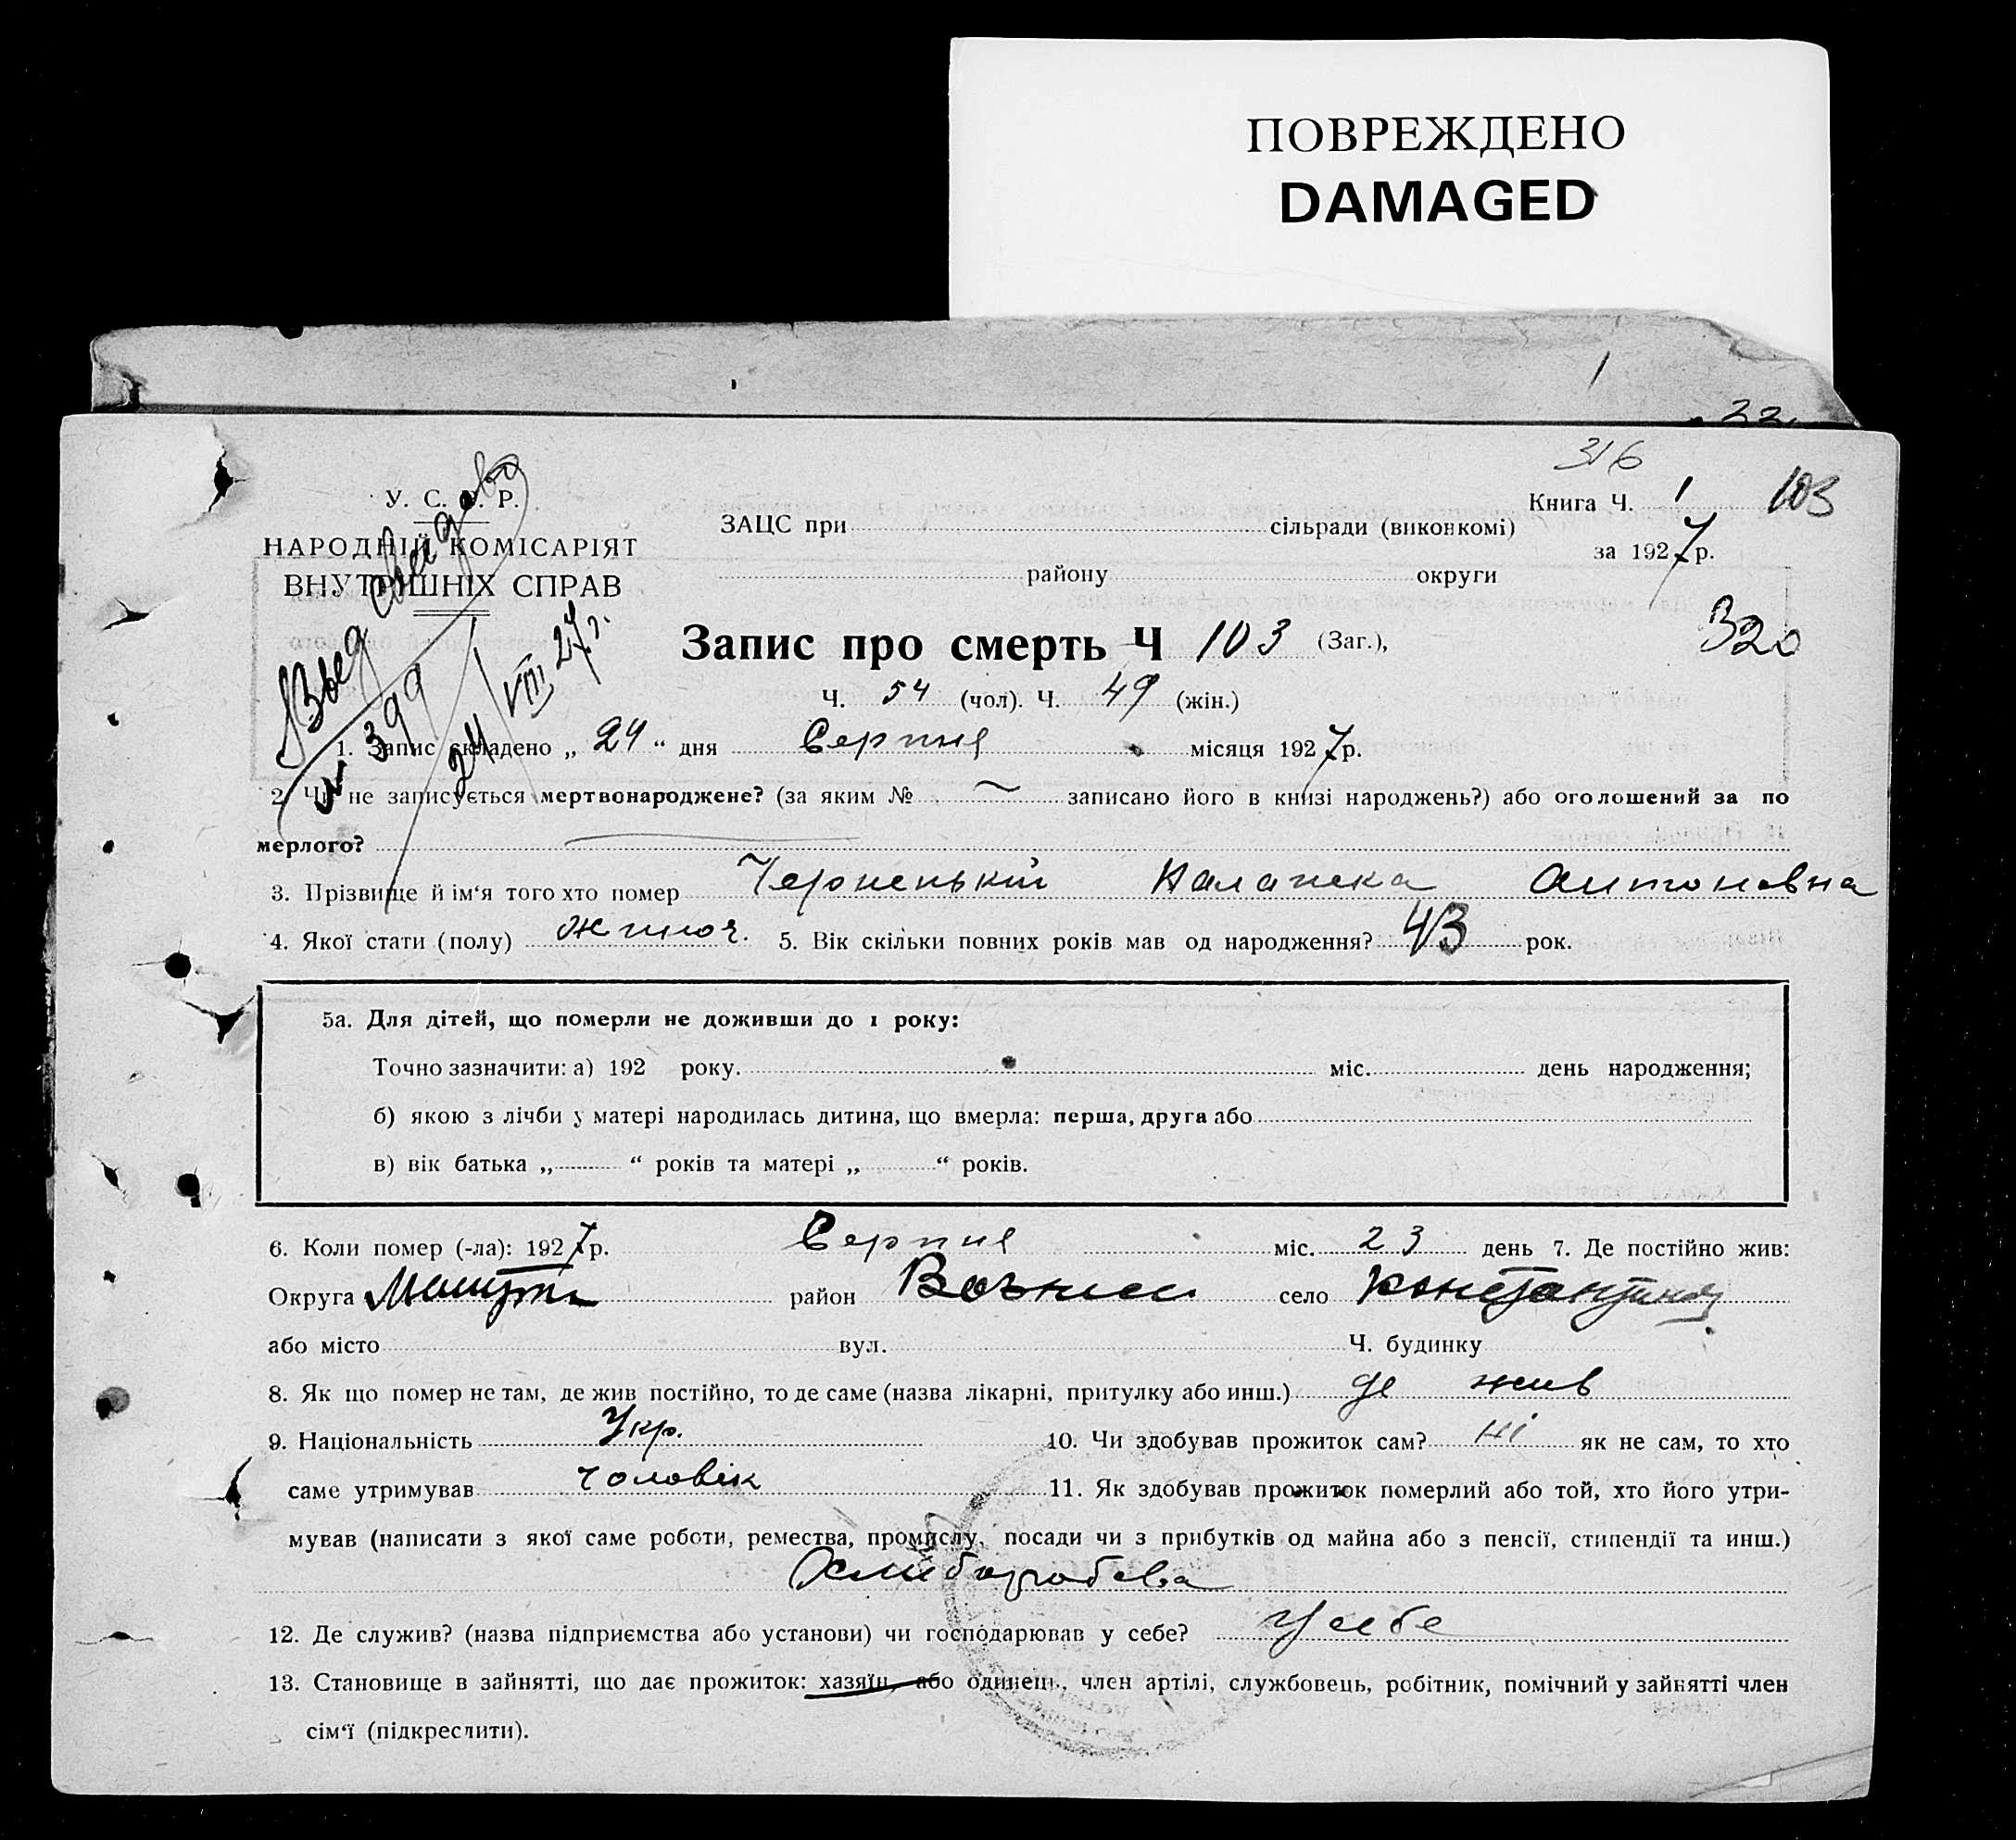 ПОВРЕЖДЕНО
DAMAGED
316
У. С. Р. Р.
Книга Ч. 1 103
ЗАЦС при сільради (виконкомі)
НАРОДНІЙ КОМІСАРІЯТ
за 1927 р.
ВНУТРІШНІХ СПРАВ
району округи
320
Запис про смерть Ч 103 (Заг.),
Ч. 54 (чол). Ч. 49 (жін.)
№ 399
24/VIII 27 г.
1. Запис складено „ 24 “ дня Серпня місяця 1927 р.
2. Чи не записується мертвонароджене? (за яким № записано його в книзі народжень?) або оголошений за по
мерлого?
3. Прізвище й ім‘я того хто помер Антоновна
4. Якої стати (полу) жіноч. 5. Вік скільки повних років мав од народження? 43 рок.
5а. Для дітей, що померли не доживши до 1 року:
Точно зазначити: а) 192 року. міс. день народження;
б) якою з лічби у матері народилась дитина, що вмерла: перша, друга або
в) вік батька „ “ років та матері „ “ років.
6. Коли помер (-ла): 1927 р. Серпня міс. 23 день 7. Де постійно жив:
Округа район Вознесен село
або місто вул. Ч. будинку
8. Як що помер не там, де жив постійно, то де саме (назва лікарні, притулку або инш.) де жив
9. Національність Укр. 10. Чи здобував прожиток сам? ні як не сам, то хто
саме утримував чоловік 11. Як здобував прожиток померлий або той, хто його утри-
мував (написати з якої саме роботи, ремества, промислу, посади чи з прибутків од майна або з пенсії, стипендії та инш.)
12. Де служив? (назва підприємства або установи) чи господарював у себе? у себе
13. Становище в зайнятті, що дає прожиток: хазяїн, або одинець, член артілі, службовець, робітник, помічний у зайнятті член
сім‘ї (підкреслити).